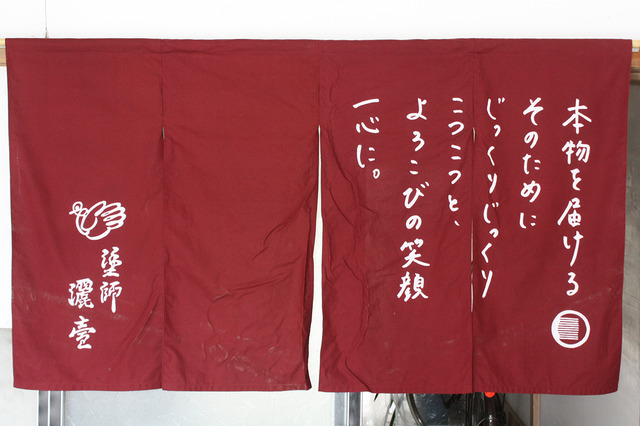 本物を届ける
そのために
じっくりじっくり
こつこつと、
よろこびの笑顔
一心に。
塗師
灑壹